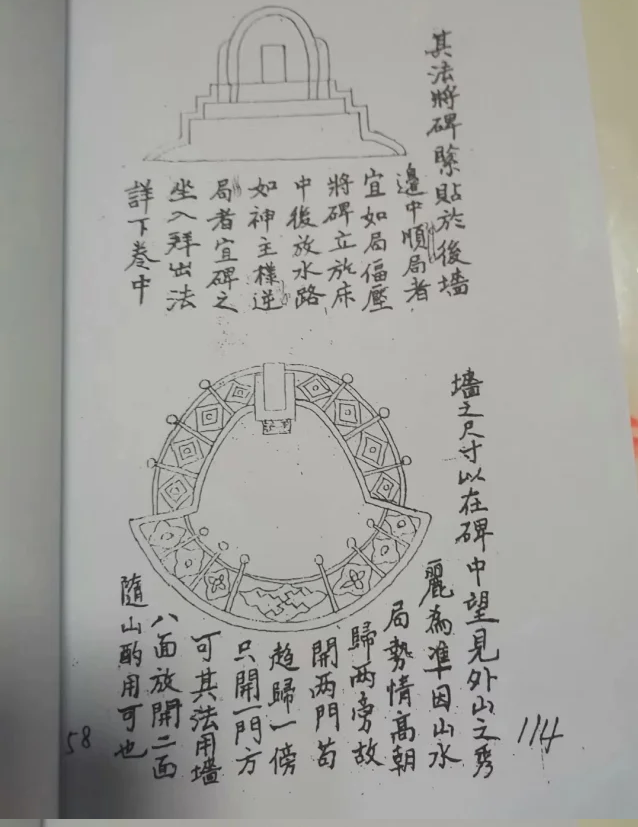 其法將碑貼於後墻
邊中順局者
宜如局偪壓
將碑立放床
中後放水路
如神主樣逆
局者宜碑之
坐入拜出法
詳下卷中
墻之尺寸以在碑中望見外山之秀
麗為準因山水
局勢情高朝
歸兩旁故
開兩門苟
趋歸一傍
只開一門方
可其法用墻
八面放開二面
隨山酌用可也
114
58